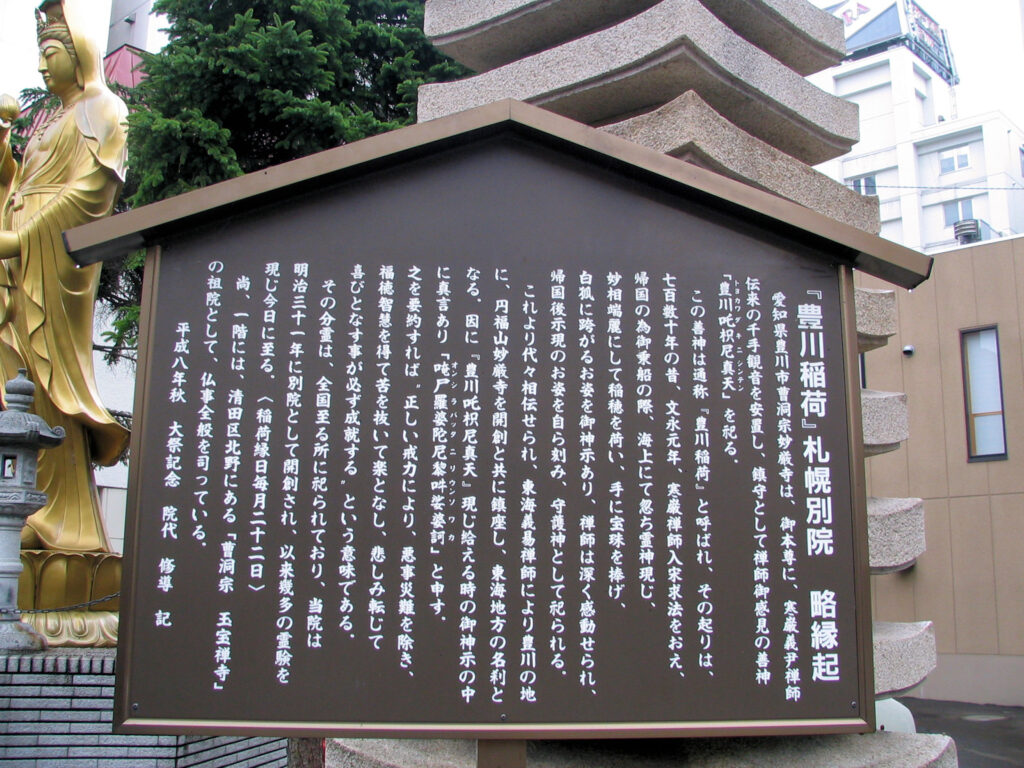 『豊川稲荷』札幌別院　略縁起
愛知県豊川市曹洞宗妙厳寺は、御本尊に、寒巌義尹禅師
伝来の千手観音を安置し、鎮守として禅師御感見の善神
『豊川吒枳尼真天』を祀る。
トヨカワダキニシンテン
この善神は通称『豊川稲荷』と呼ばれ、その起りは、
七百数十年の昔、文永元年、寒巌禅師入宋求法をおえ、
帰国の為御乗船の際、海上にて忽ち霊神現じ、
妙相端麗にして稲穂を荷い、手に宝珠を捧げ、
白狐に跨がるお姿を御神示あり、禅師は深く感動せられ、
帰国後示現のお姿を自ら刻み、守護神として祀られる。
これより代々相伝せられ、東海義易禅師により豊川の地
に、円福山妙厳寺を開創と共に鎮座し、東海地方の名刹と
なる。因に『豊川吒枳尼真天』現じ給える時の御神示の中
に真言あり『唵尸羅婆陀尼黎吽娑婆訶』と申す。
オンシラバッタニリウンソワカ
之を要約すれば〝正しい戒力により、悪事災難を除き、
福徳智慧を得て苦を抜いて楽となし、悲しみ転じて
喜びとなす事が必ず成就する〟という意味である。
その分霊は、全国至る所に祀られており、当院は
明治三十一年に別院として開創され、以来幾多の霊験を
現じ今日に至る。〈稲荷縁日毎月二十二日〉
尚、一階には、清田区北野にある「曹洞宗　玉宝禅寺」
の祖院として、仏事全般を司っている。
平成八年秋　大祭記念　院代　脩導　記